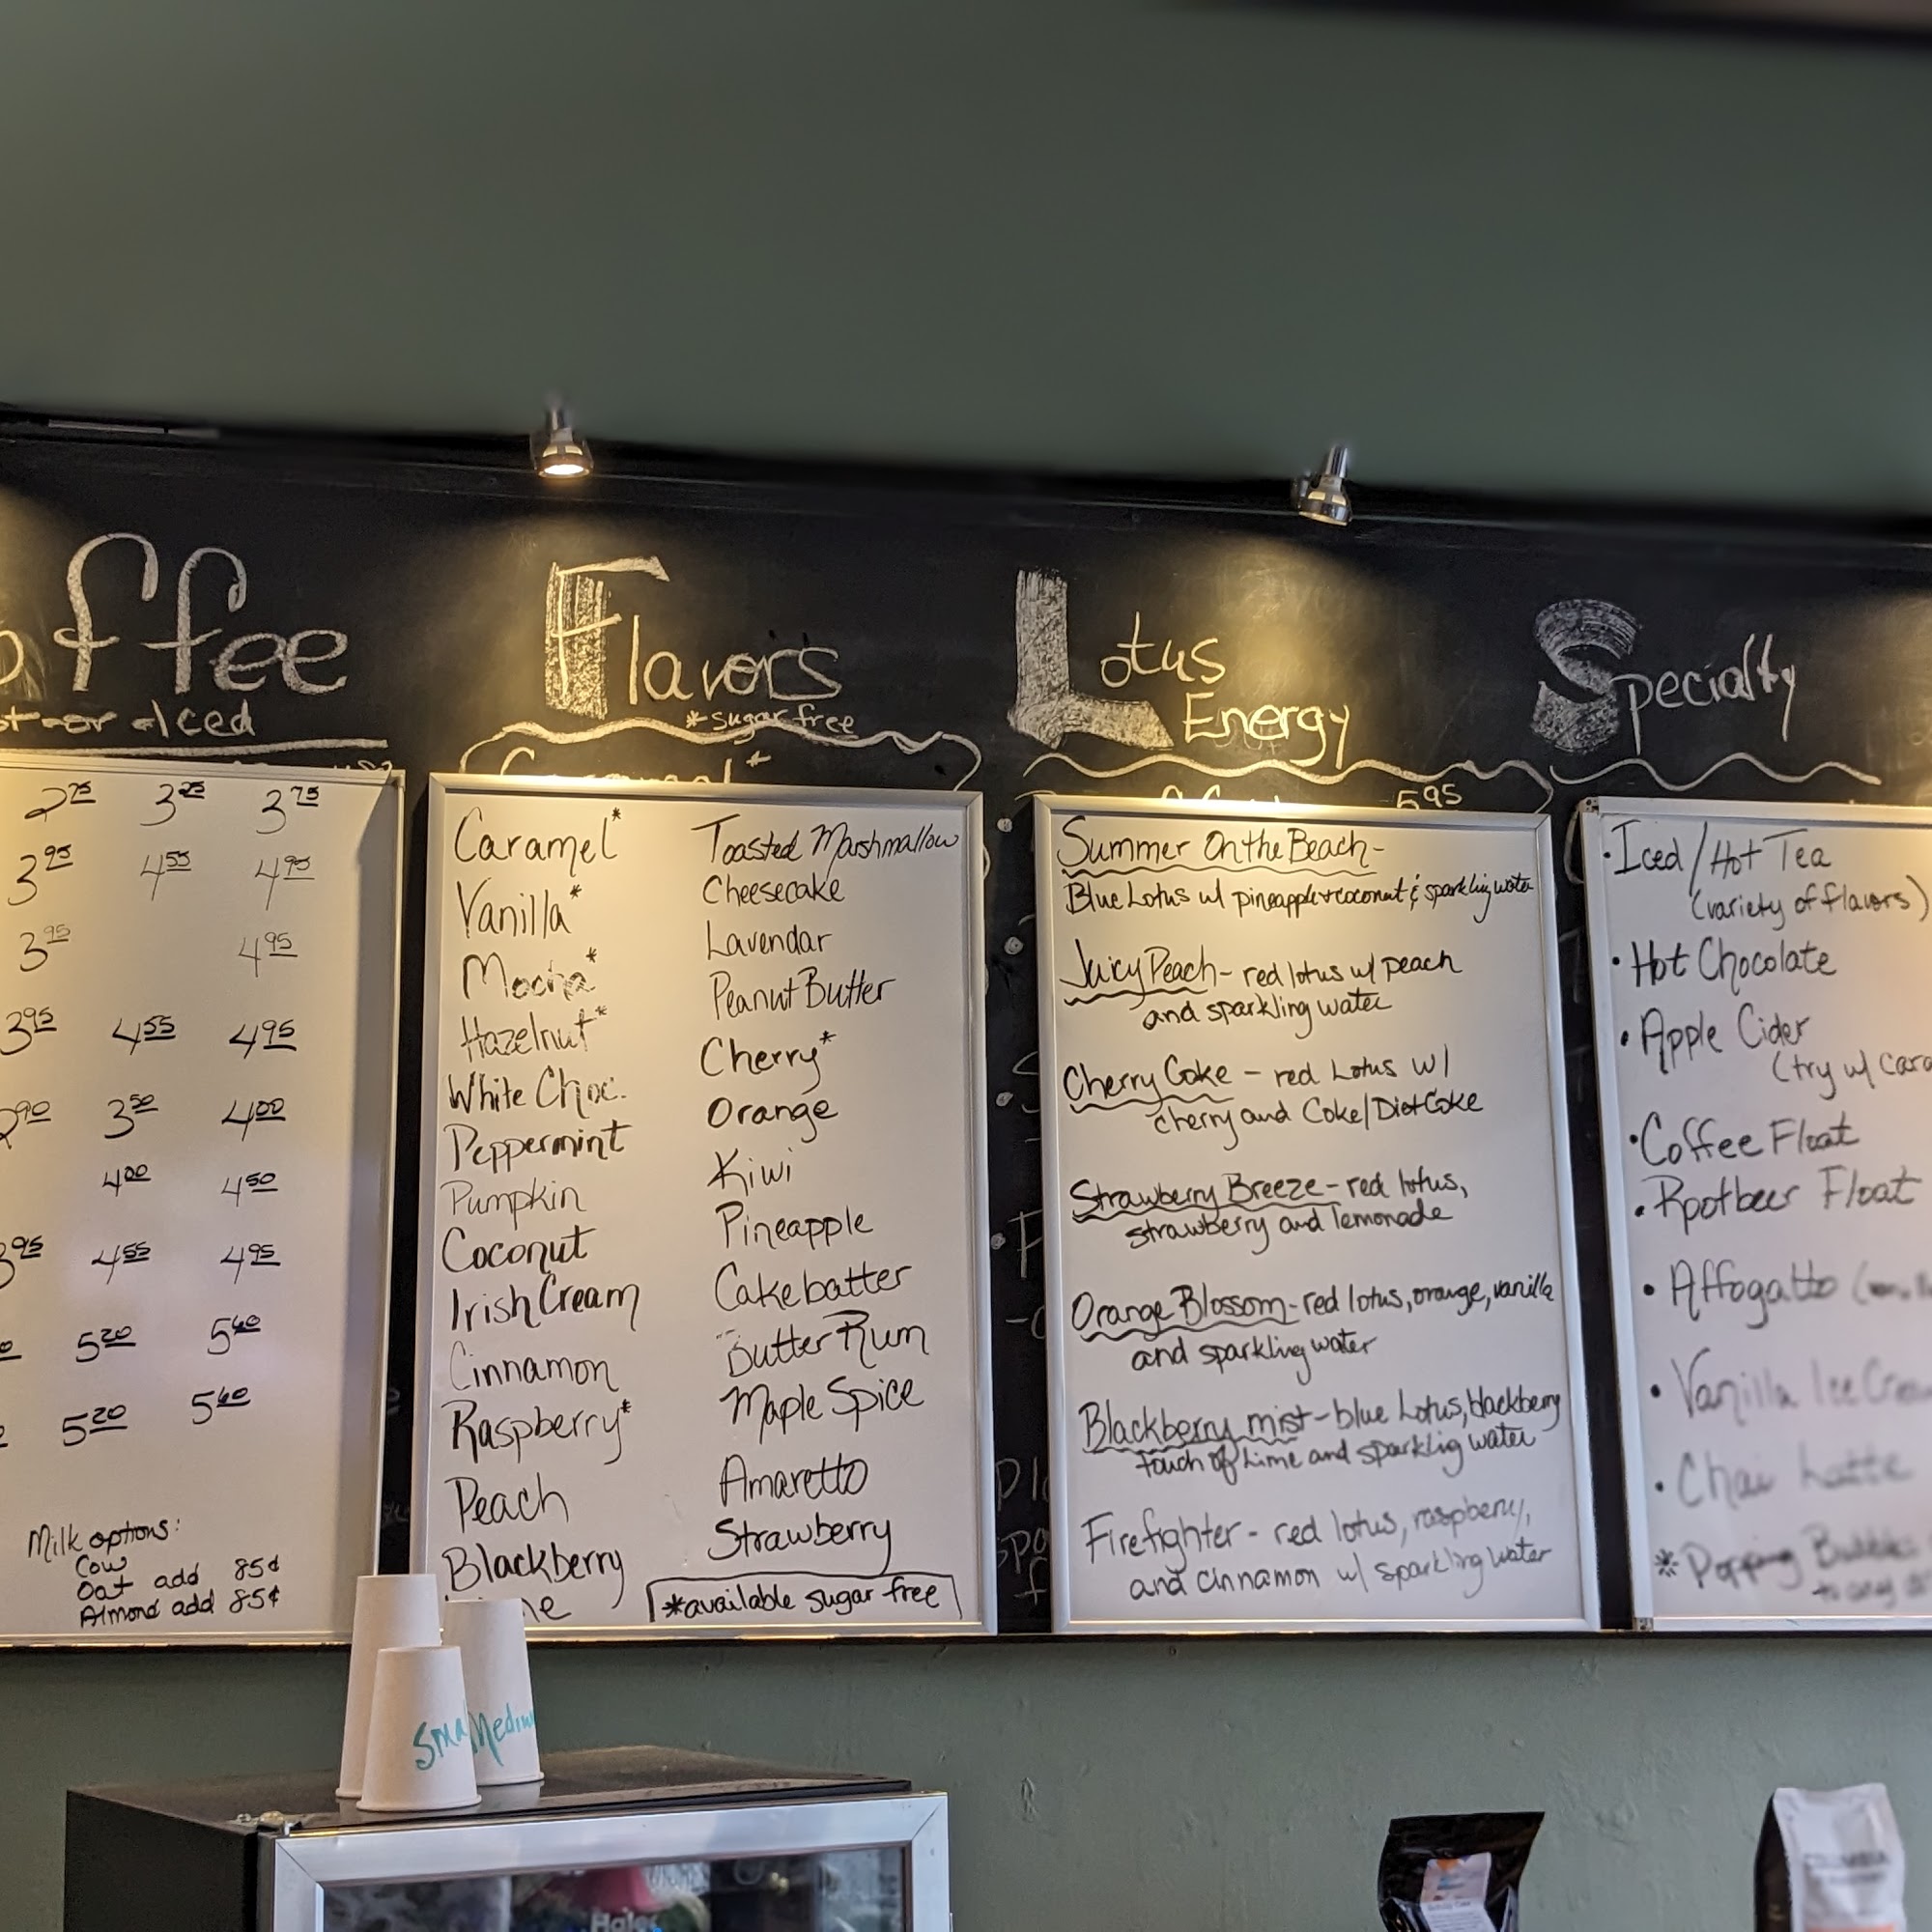 offee
Iced
2 75 3 25 3 75
3 95 4 55 4 95
3 95 4 95
3 95 4 55 4 95
2 90 3 50 4 00
4 00 4 50
3 95 4 55 4 95
5 20 5 60
5 20 5 60
Milk options:
Cow
Oat add 85¢
Almond add 85¢
Flavors
*sugar free
Caramel*
Vanilla*
Mocha*
Hazelnut*
White Choc.
Peppermint
Pumpkin
Coconut
Irish Cream
Cinnamon
Raspberry*
Peach
Blackberry
Toasted Marshmallow
Cheesecake
Lavendar
Peanut Butter
Cherry*
Orange
Kiwi
Pineapple
Cakebatter
Butter Rum
Maple Spice
Amaretto
Strawberry
*available sugar free
Lotus
Energy
5 95
Summer On the Beach-
Blue Lotus w/ pineapple+coconut & sparkling water
Juicy Peach- red lotus w/ peach
and sparkling water
Cherry Coke - red Lotus w/
cherry and Coke/Diet Coke
Strawberry Breeze - red lotus,
strawberry and lemonade
Orange Blossom - red lotus, orange, vanilla
and sparkling water
Blackberry mist - blue Lotus, blackberry
touch of Lime and sparklig water
Firefighter - red lotus, raspberry,
and cinnamon w/ sparkling water
Specialty
•Iced/Hot Tea
(variety of flavors)
•Hot Chocolate
•Apple Cider
(try w/ cara
•Coffee Float
•Rootbeer Float
•Affogatto
•Vanilla Ice Cream
•Chai Latte
*Popping Bubbles
to any
Sma
Medium
Haier